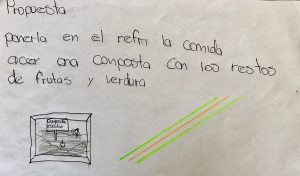 Propuesta
ponerla en el refri la comida
acer una composta con los restos
de frutas y verdura
Composta